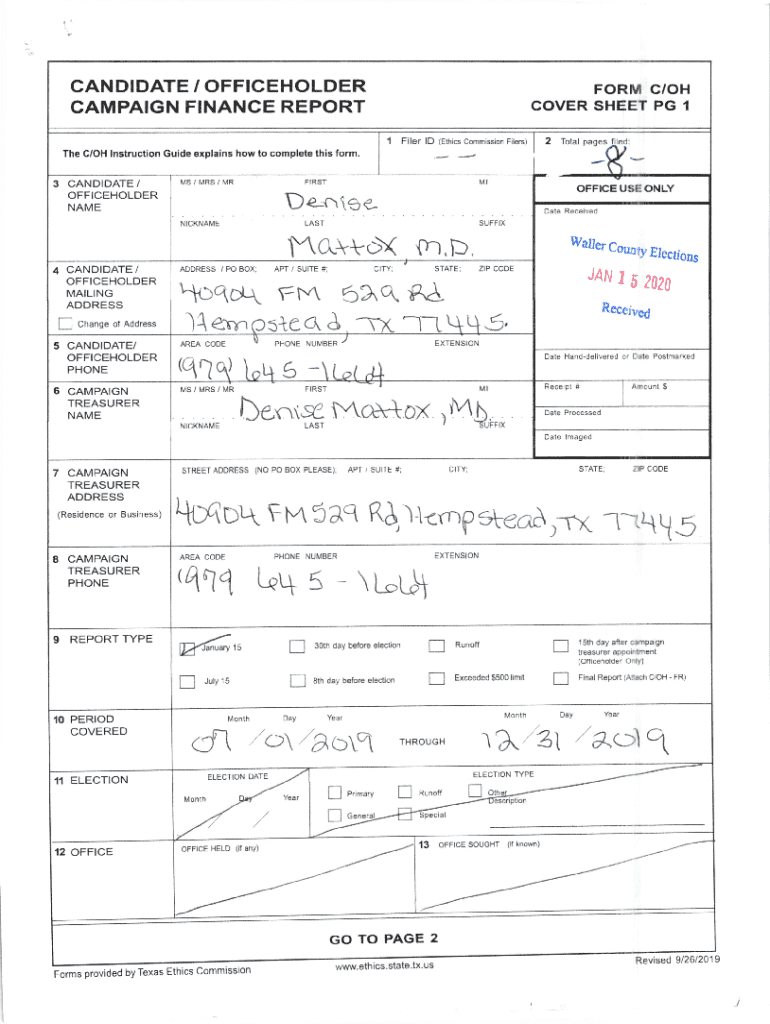 CANDIDATE / OFFICEHOLDER
CAMPAIGN FINANCE REPORT
FORM C/OH
COVER SHEET PG 1
The C/OH Instruction Guide explains how to complete this form.
1 Filer ID (Ethics Commission Filers)
— —
2 Total pages filed:
-8-
3 CANDIDATE / OFFICEHOLDER NAME
MS / MRS / MR FIRST MI
Denise
NICKNAME LAST SUFFIX
Mattox, M.D.
OFFICE USE ONLY
Date Received
Waller County Elections
JAN 15 2020
Received
4 CANDIDATE / OFFICEHOLDER MAILING ADDRESS
Change of Address
ADDRESS / PO BOX; APT / SUITE #; CITY; STATE; ZIP CODE
40904 FM 529 Rd
Hempstead, TX 77445.
5 CANDIDATE/ OFFICEHOLDER PHONE
AREA CODE PHONE NUMBER EXTENSION
(979) 645-1664
Date Hand-delivered or Date Postmarked
6 CAMPAIGN TREASURER NAME
MS / MRS / MR FIRST MI
Denise Mattox, MD.
NICKNAME LAST SUFFIX
Receipt # Amount $
Date Processed
Date Imaged
7 CAMPAIGN TREASURER ADDRESS
(Residence or Business)
STREET ADDRESS (NO PO BOX PLEASE); APT / SUITE #; CITY; STATE; ZIP CODE
40904 FM 529 Rd, Hempstead, TX 77445
8 CAMPAIGN TREASURER PHONE
AREA CODE PHONE NUMBER EXTENSION
(979 645-1664
9 REPORT TYPE
January 15 30th day before election Runoff 15th day after campaign treasurer appointment (Officeholder Only)
July 15 8th day before election Exceeded $500 limit Final Report (Attach C/OH - FR)
10 PERIOD COVERED
Month Day Year Month Day Year
07 / 01 / 2019 THROUGH 12 / 31 / 2019
11 ELECTION
ELECTION DATE ELECTION TYPE
Month Day Year
/ /
Primary Runoff Other Description
General Special
12 OFFICE
OFFICE HELD (if any)
13 OFFICE SOUGHT (if known)
GO TO PAGE 2
Forms provided by Texas Ethics Commission www.ethics.state.tx.us Revised 9/26/2019